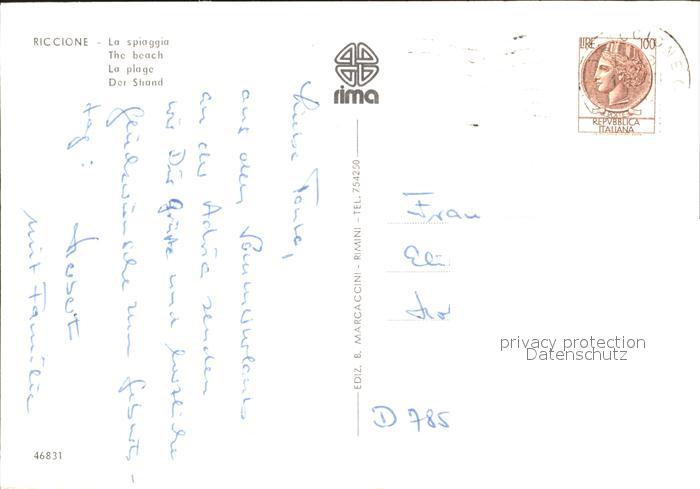 RICCIONE - La spiaggia
The beach
La plage
Der Strand
rima
LIRE 100
REPVBBLICA
ITALIANA
Liebe Tante,
aus dem Sommerurlaub
an der Adria senden
wir Dir Grüße und herzliche
Glückwünsche zum Geburts-
tag!
Herbert
mit Familie
EDIZ. B. MARCACCINI - RIMINI - TEL. 754250
Frau
D 785
privacy protection
Datenschutz
46831